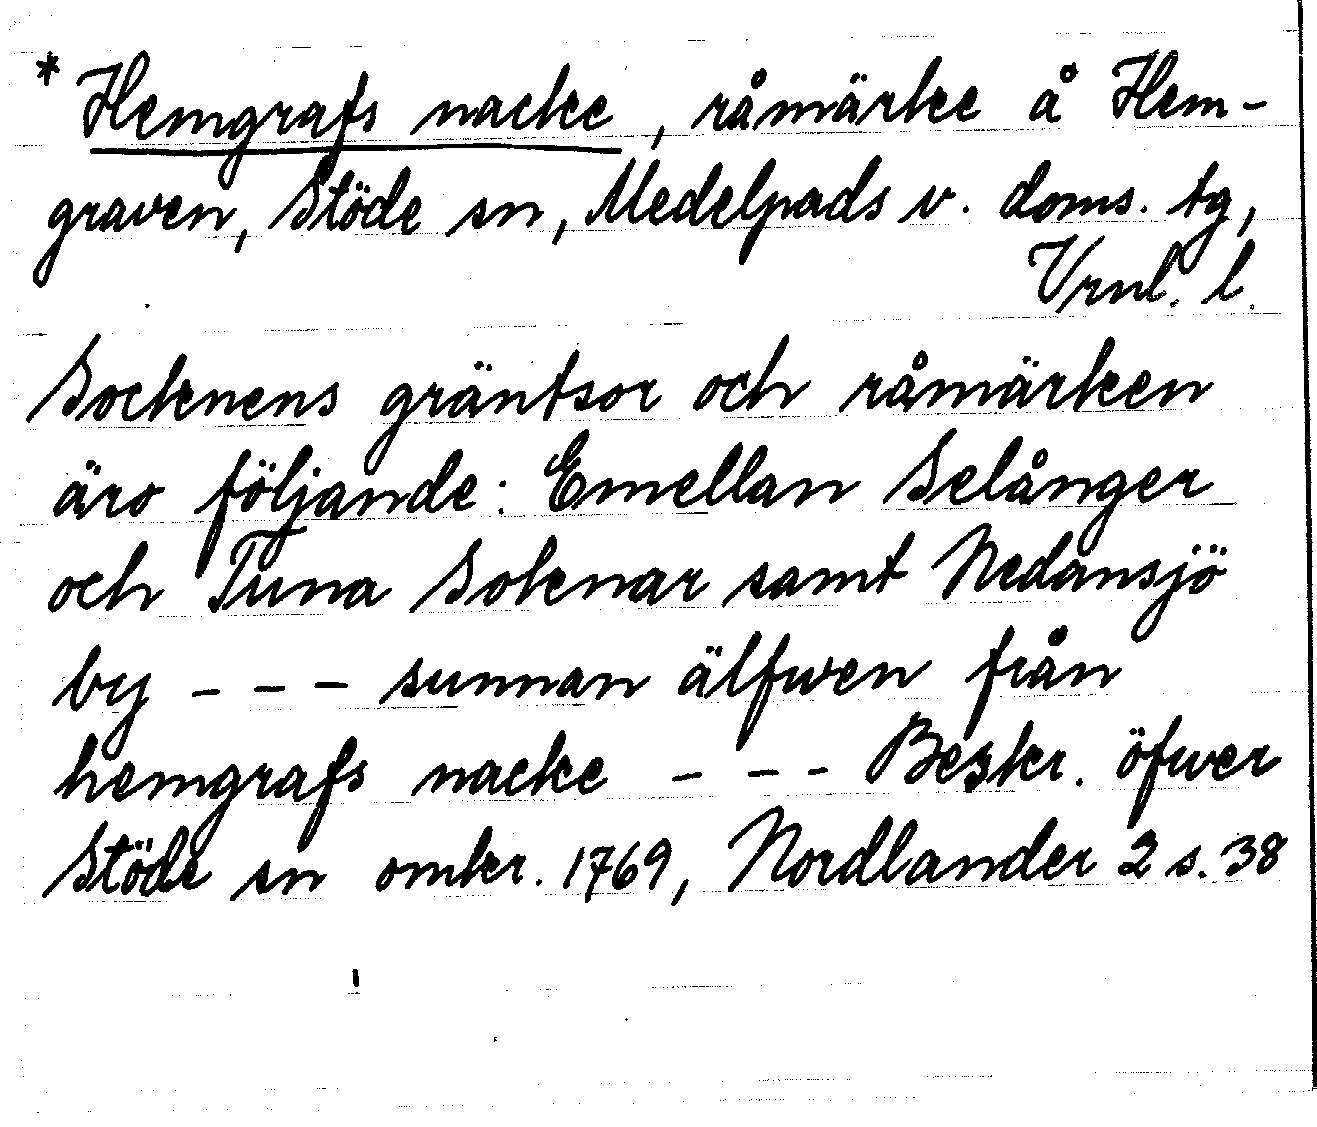 * Hemgrafs nacke, råmärke å Hem-
graven, Stöde sn, Medelpads v. doms. tg,
Vrnl. l.
Socknens gräntsor och råmärken
äro följande: Emellan Selånger
och Tuna Soknar samt Nedansjö
by - - - sunnan älfwen från
hemgrafs nacke - - - Beskr. öfwer
Stöde sn omkr. 1769, Nordlander 2 s. 38